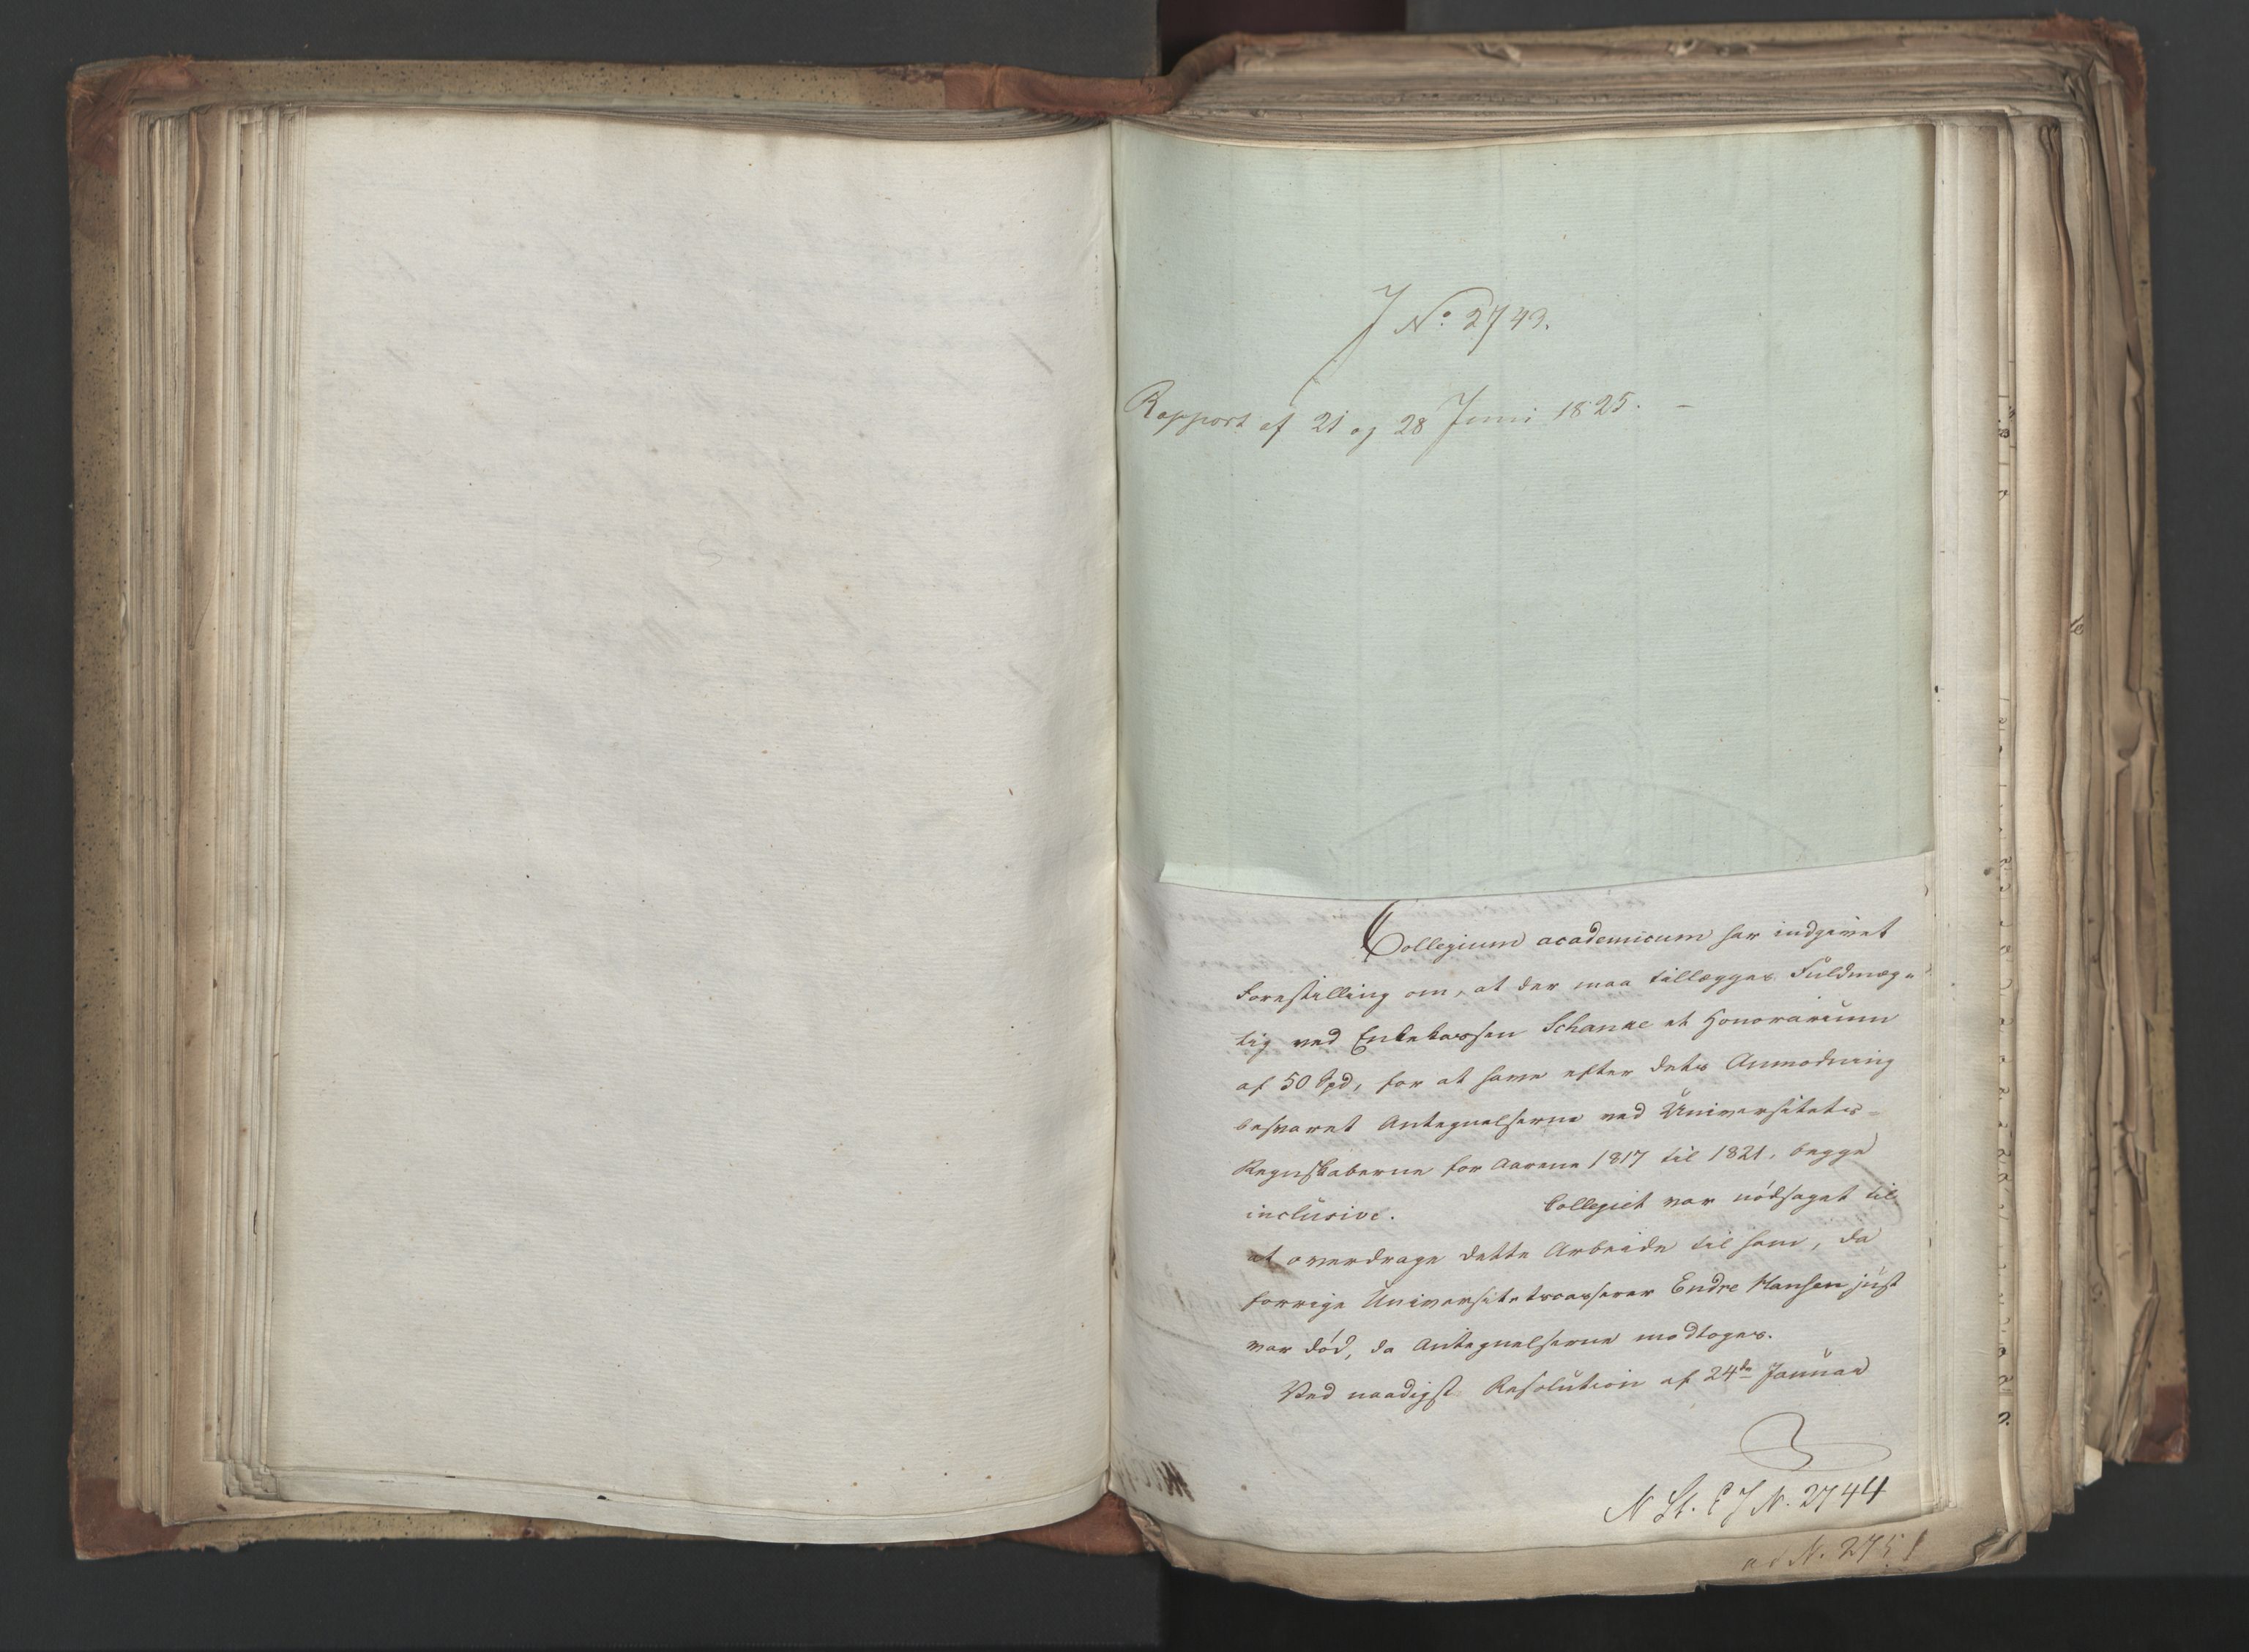 J No 2743.
Rapport af 21 og 28 Juni 1825. -
Collegium academicum har indgivet
Forestilling om, at der maa tillægges Fuldmæg-
tig ved Enkekassen Schanke et Honorarium
af 50 Spd, for at have efter dets Anmodning
besvaret Antegnelserne ved Universitets-
Regnskaberne for Aarene 1817 til 1821, begge
inclusive. Collegiet var nödsaget til
at overdrage dette Arbeide til ham, da
forrige Universitetscasserer Endre Hansen just
var död, da Antegnelserne modtoges.
Ved naadigst Resolution af 24de Januar
N St. E J N. 2744
ad N. 2751